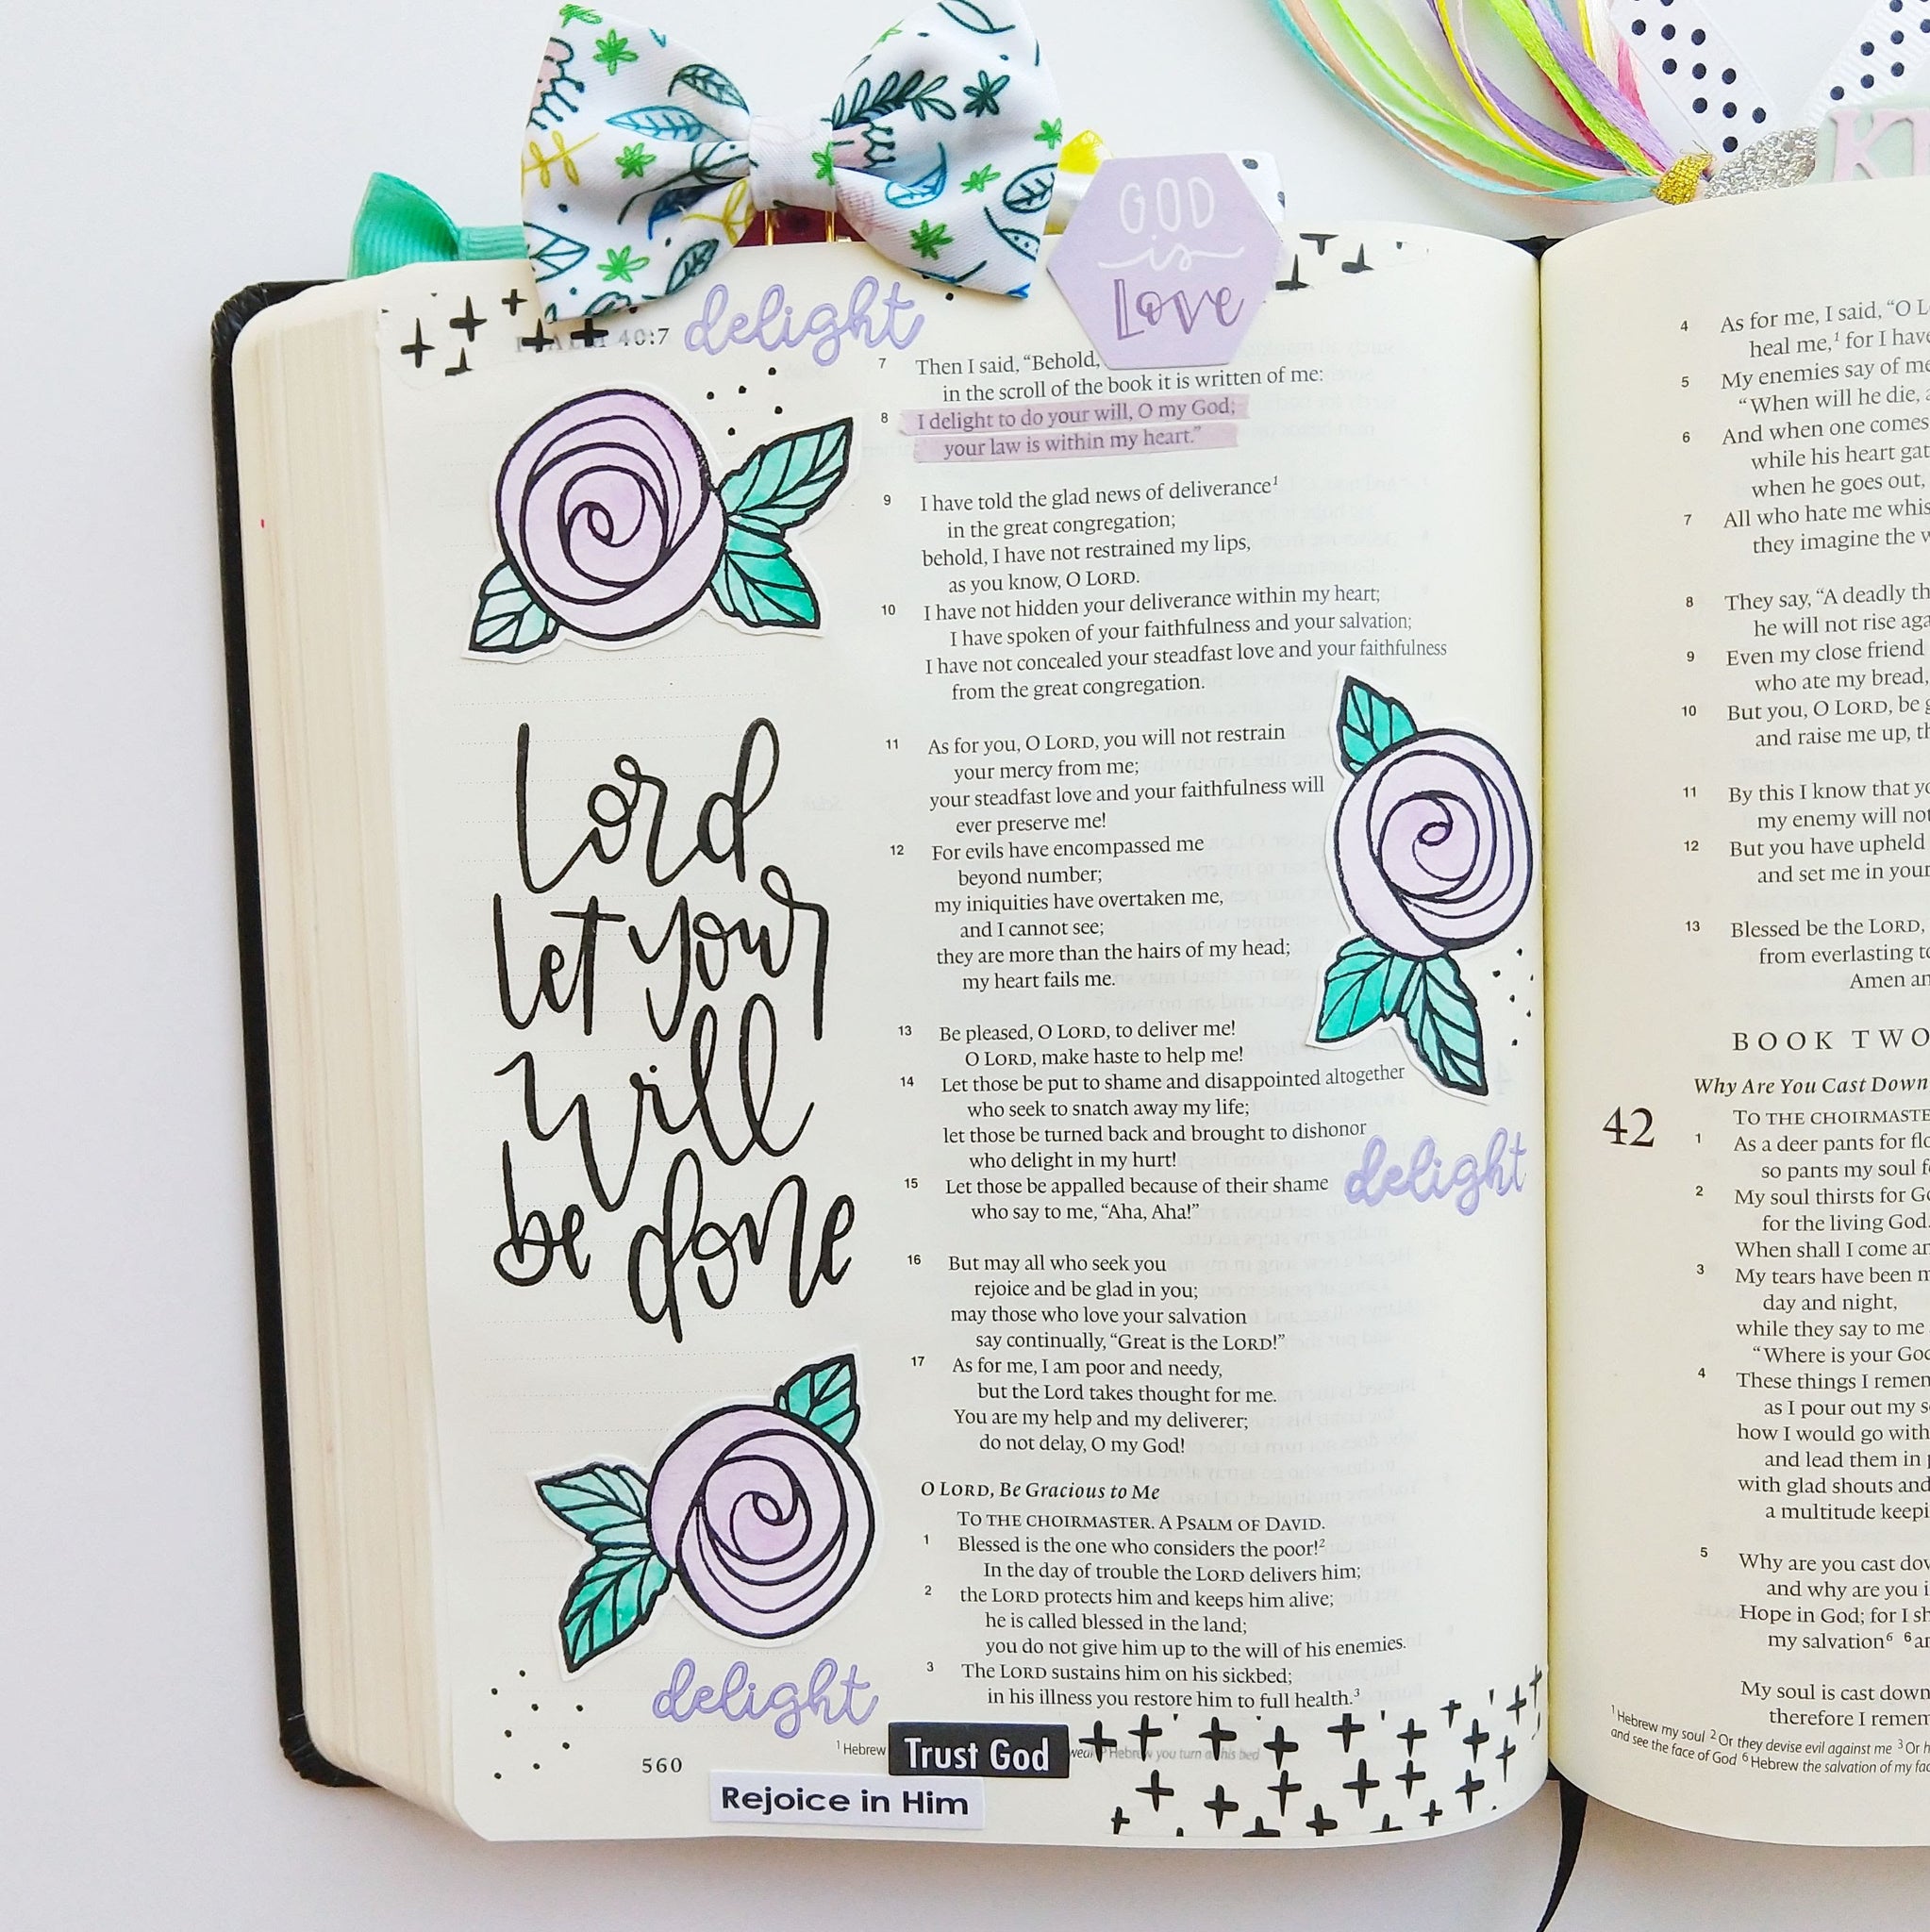 GOD
is
Love
KI
PSALM 40:7
delight
7 Then I said, “Behold,
in the scroll of the book it is written of me:
8 I delight to do your will, O my God;
your law is within my heart.”
9 I have told the glad news of deliverance1
in the great congregation;
behold, I have not restrained my lips,
as you know, O LORD.
10 I have not hidden your deliverance within my heart;
I have spoken of your faithfulness and your salvation;
I have not concealed your steadfast love and your faithfulness
from the great congregation.
11 As for you, O LORD, you will not restrain
your mercy from me;
your steadfast love and your faithfulness will
ever preserve me!
12 For evils have encompassed me
beyond number;
my iniquities have overtaken me,
and I cannot see;
they are more than the hairs of my head;
my heart fails me.
13 Be pleased, O LORD, to deliver me!
O LORD, make haste to help me!
14 Let those be put to shame and disappointed altogether
who seek to snatch away my life;
let those be turned back and brought to dishonor
who delight in my hurt!
15 Let those be appalled because of their shame
who say to me, “Aha, Aha!”
delight
16 But may all who seek you
rejoice and be glad in you;
may those who love your salvation
say continually, “Great is the LORD!”
17 As for me, I am poor and needy,
but the Lord takes thought for me.
You are my help and my deliverer;
do not delay, O my God!
O LORD, Be Gracious to Me
TO THE CHOIRMASTER. A PSALM OF DAVID.
1 Blessed is the one who considers the poor!2
In the day of trouble the LORD delivers him;
2 the LORD protects him and keeps him alive;
he is called blessed in the land;
you do not give him up to the will of his enemies.
3 The LORD sustains him on his sickbed;
in his illness you restore him to full health.3
Lord
let your
will
be done
delight
1 Hebrew
Trust God
Hebrew you turn all his bed
560
Rejoice in Him
4 As for me, I said, “O L
heal me,1 for I have
5 My enemies say of me
“When will he die, a
6 And when one comes
while his heart gat
when he goes out,
7 All who hate me whis
they imagine the w
8 They say, “A deadly th
he will not rise aga
9 Even my close friend
who ate my bread,
10 But you, O LORD, be g
and raise me up, th
11 By this I know that yo
my enemy will not
12 But you have upheld
and set me in your
13 Blessed be the LORD,
from everlasting to
Amen an
BOOK TWO
Why Are You Cast Down
42 TO THE CHOIRMASTE
1 As a deer pants for flo
so pants my soul f
2 My soul thirsts for Go
for the living God.
When shall I come an
3 My tears have been m
day and night,
while they say to me
“Where is your God
4 These things I remem
as I pour out my s
how I would go with
and lead them in p
with glad shouts and
a multitude keepi
5 Why are you cast dow
and why are you i
Hope in God; for I sh
my salvation6 6 an
My soul is cast down
therefore I remem
1 Hebrew my soul 2 Or they devise evil against me 3 Or h
and see the face of God 6 Hebrew the salvation of my fac